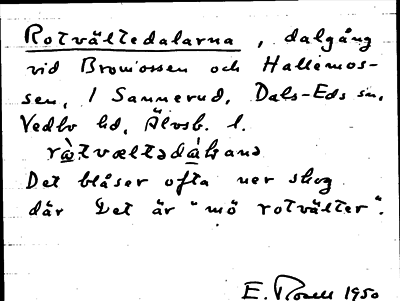 Rotvältedalarna, dalgång
vid Browiossen och Hallemos-
sen, 1 Sannerud, Dals-Eds sn,
Vedbo hd, Älvsb. l.
Det blåser ofta ner skog
där Det är "mö rotvälter".
E. Rosell 1950